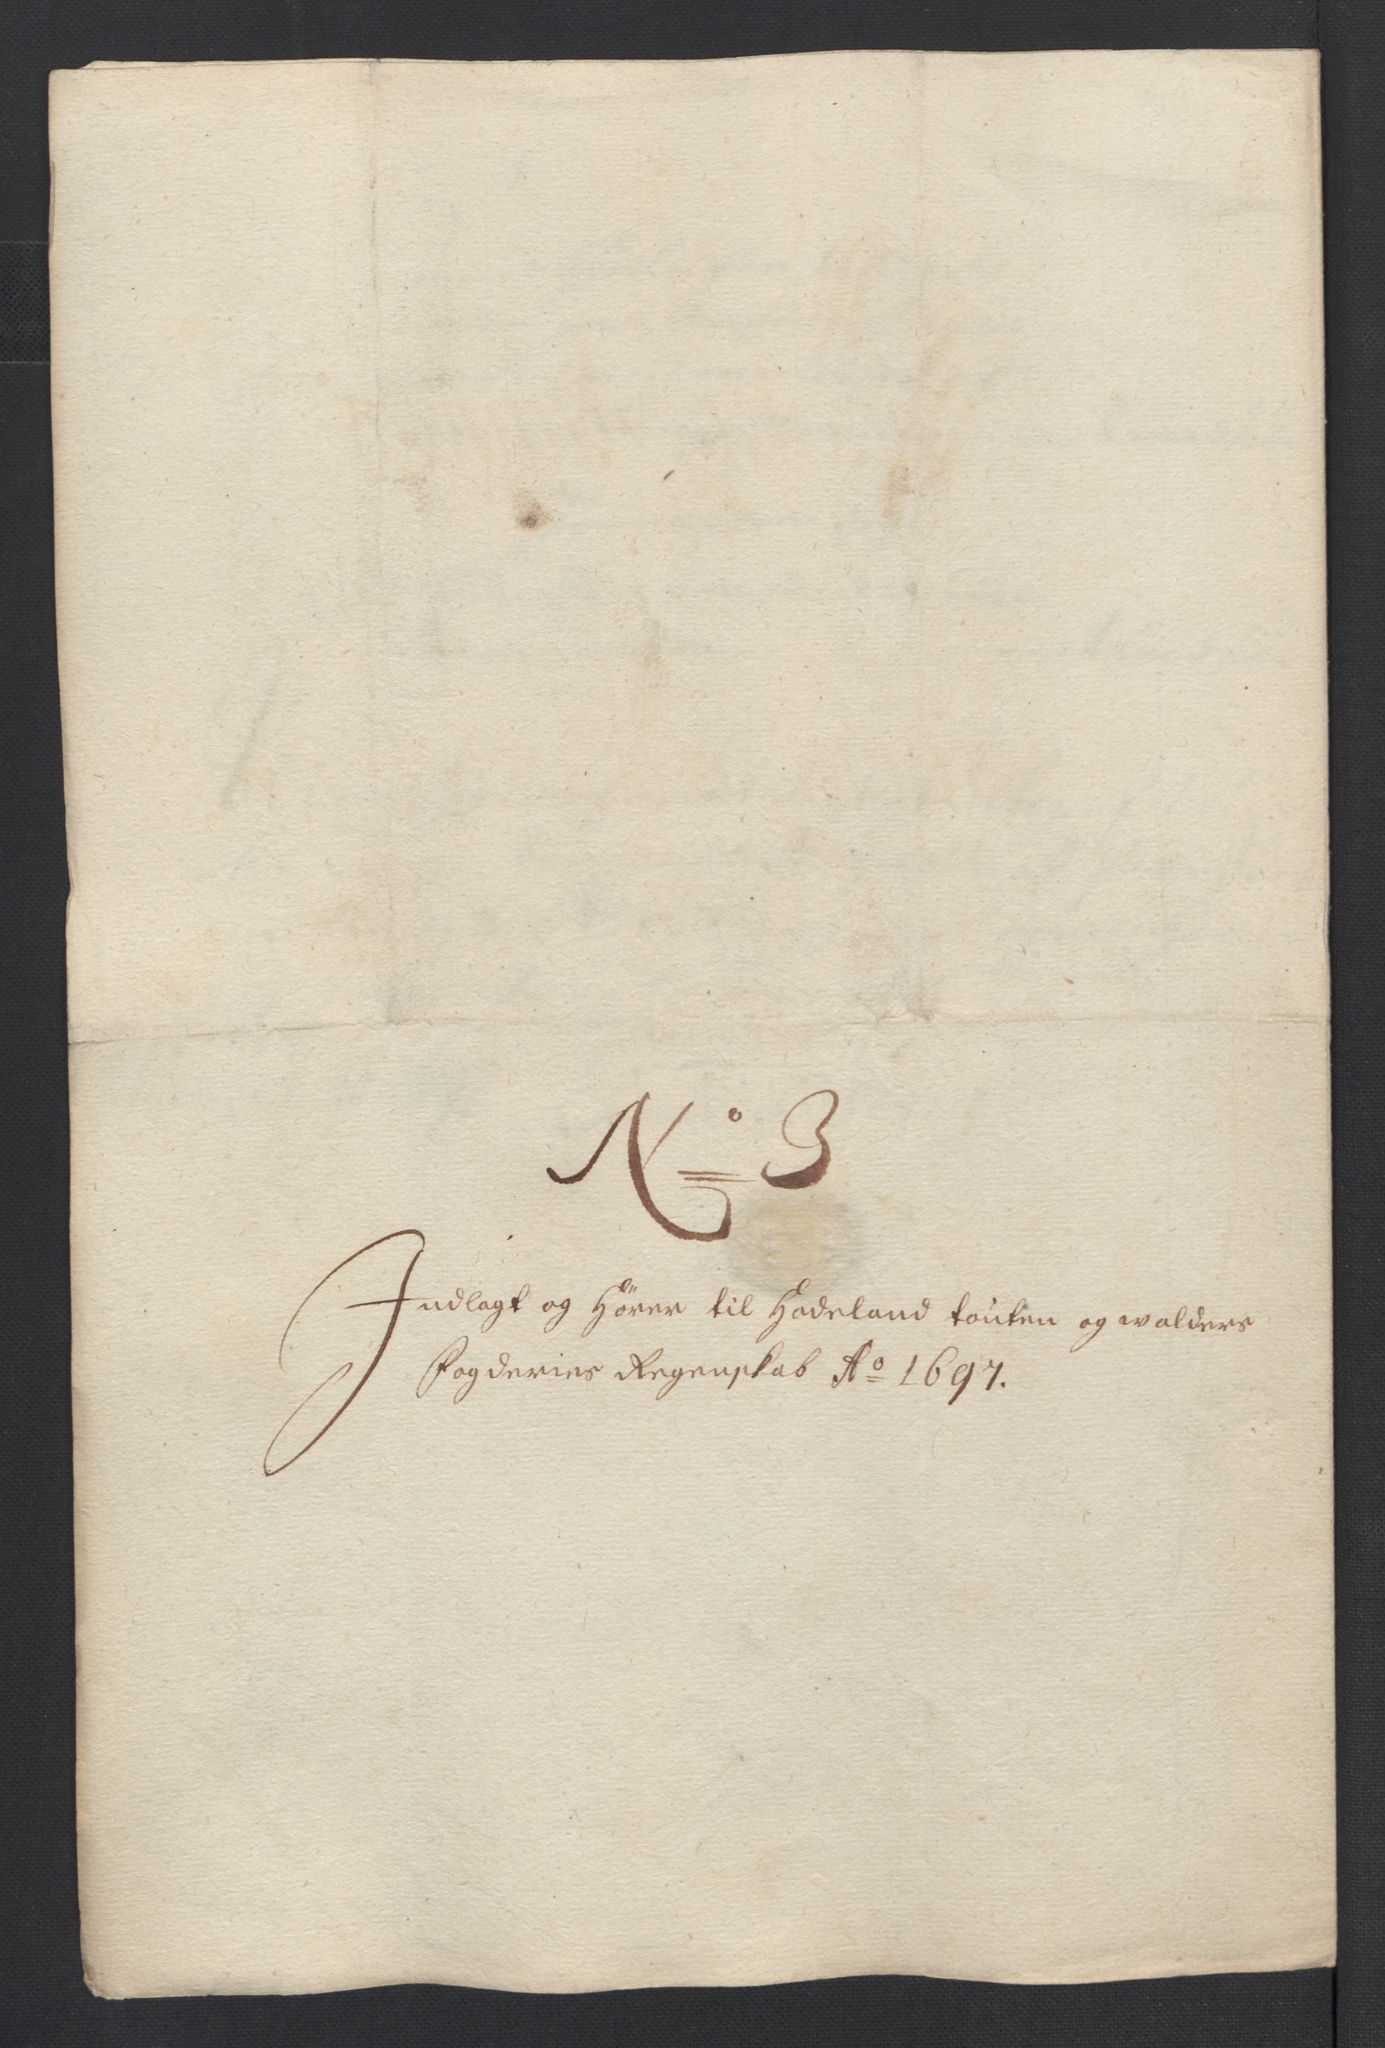 No 3
Indlagt og Hörer til Hadeland toŭten og walders
Fogderies Regenskab Ao 1697.